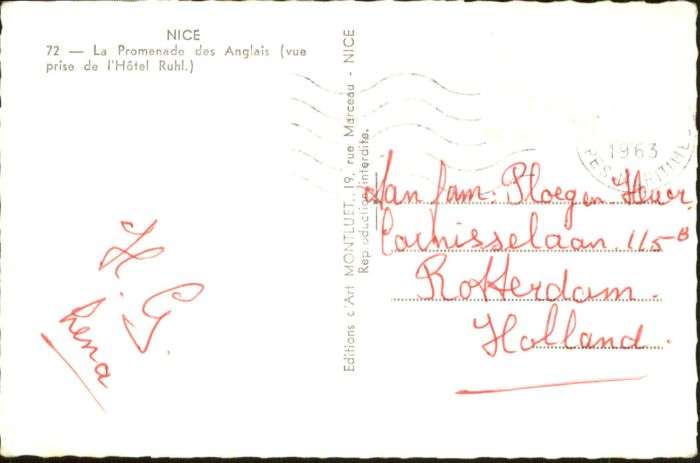 NICE
72 — La Promenade des Anglais (vue
prise de l'Hôtel Ruhl.)
Editions d'Art MONTLUET, 19, rue Marceau - NICE
Reproduction interdite.
1963
RITIME
H. G.
Rena
Aan fam. Ploeg en Heuer.
Carnisselaan 115B
Rotterdam.
Holland.